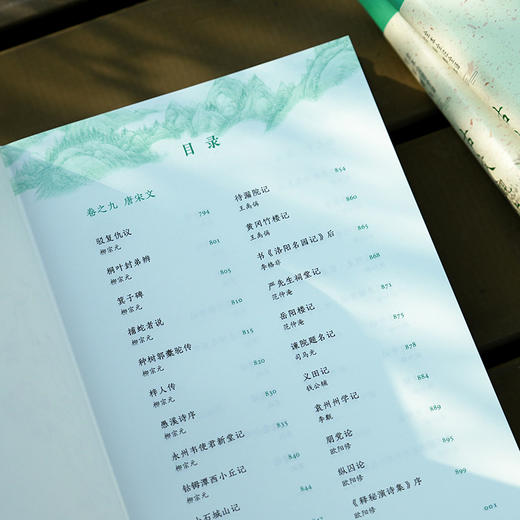 目录
卷之九 唐宋文
驳复仇议 794
柳宗元
桐叶封弟辨 801
柳宗元
箕子碑 805
柳宗元
捕蛇者说 810
柳宗元
种树郭橐驼传 815
柳宗元
梓人传 820
柳宗元
愚溪诗序 830
柳宗元
永州韦使君新堂记 835
柳宗元
钴鉧潭西小丘记 840
柳宗元
小石城山记 844
待漏院记 854
王禹偁
黄冈竹楼记 860
王禹偁
书《洛阳名园记》后 865
李格非
严先生祠堂记 868
范仲淹
岳阳楼记 871
范仲淹
谏院题名记 875
司马光
义田记 878
钱公辅
袁州州学记 884
李觏
朋党论 889
欧阳修
纵囚论 895
欧阳修
《释秘演诗集》序 899
欧阳修